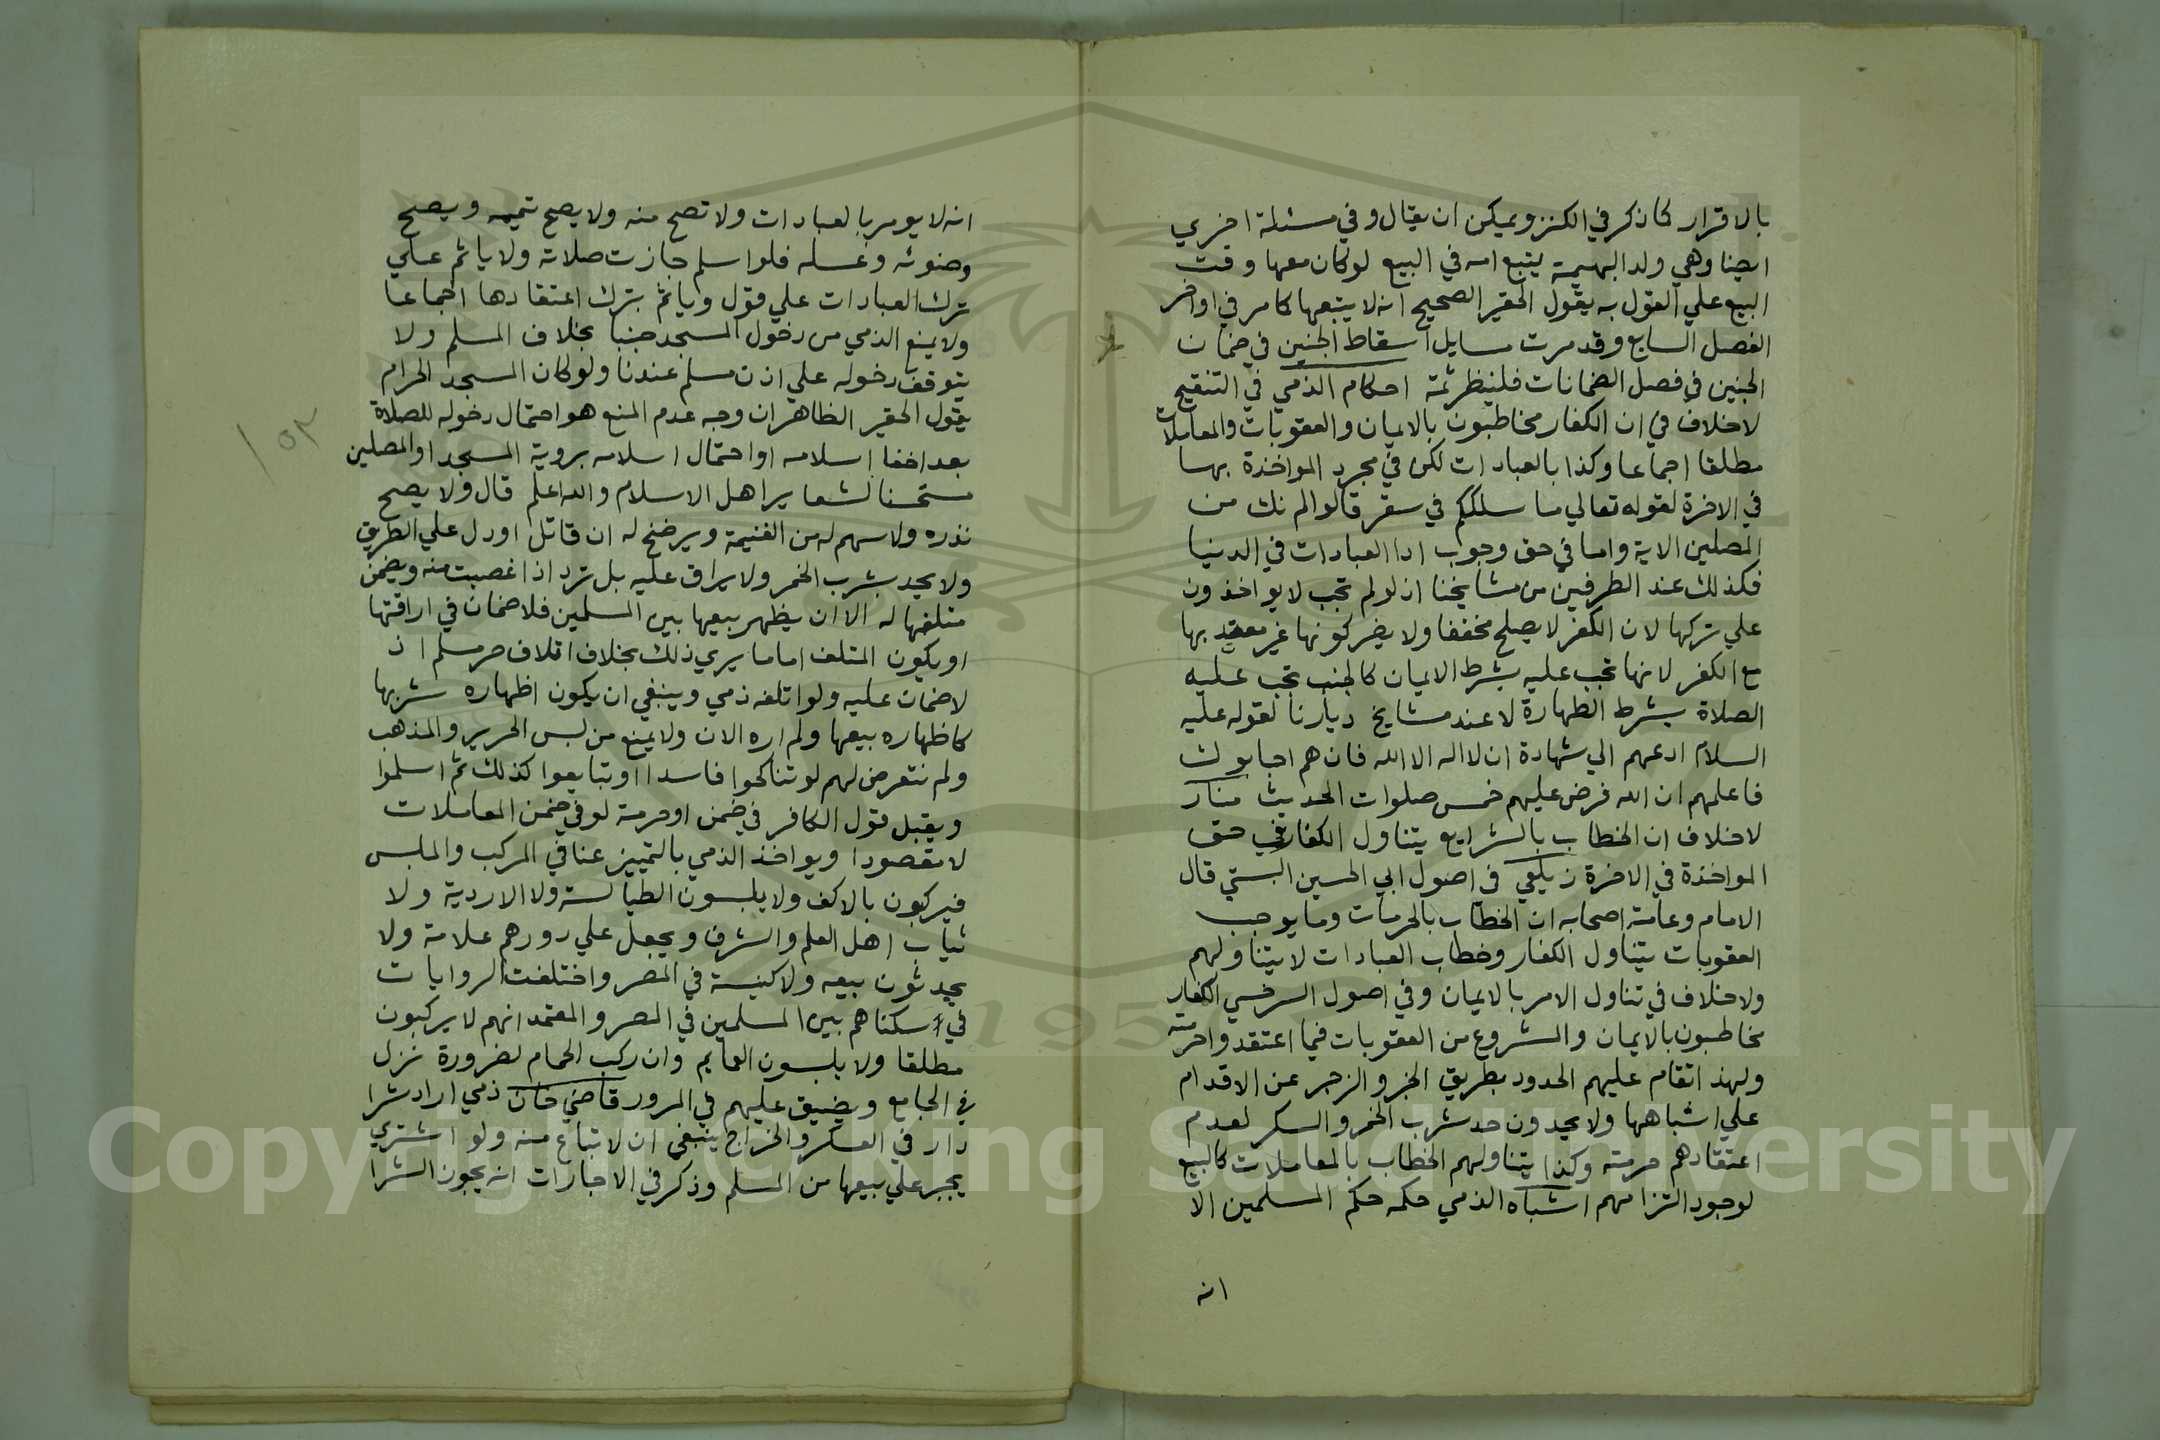 بالاقرار كما ذكر في الكنز ويمكن ان يقال وفي مسئلة اخري
ايضا وهي ولد البهيمة يتبع امه في البيع لو كان معها وقت
البيع علي القول به يقول الحقير الصحيح انه لا يتبعها كما مر في اواخر
الفصل السابع وقد مرت مسايل اسقاط الجنين في ضمان
الجنين في فصل الضمانات فلينظر ثمة احكام الذمي في التنقيح
لا خلاف في ان الكفار مخاطبون بالايمان والعقوبات والمعاملات
مطلقا اجماعا وكذا بالعبادات لكن في مجرد المواخذة بها
في الاخرة لقوله تعالي ما سلككم في سقر قالوا لم نك من
المصلين الاية واما في حق وجوب ادا العبادات في الدنيا
فكذلك عند الطرفين من مشايخنا اذ لو لم تجب لا يواخذون
علي تركها لان الكفر لا يصلح مخففا ولا يضر كونها غير معتد بها
مع الكفر لانها تجب عليه بشرط الايمان كالجنب تجب عليه
الصلاة بشرط الطهارة لا عند مشايخ ديارنا لقوله عليه
السلام ادعهم الي شهادة ان لا اله الا الله فان هم اجابوك
فاعلمهم ان الله فرض عليهم خمس صلوات الحديث منار
لا خلاف ان الخطاب بالشرايع يتناول الكفار في حق
المواخذة في الاخرة زيلعي في اصول ابي الحسين البستي قال
الامام وعامة اصحابه ان الخطاب بالحرمات وما يوجب
العقوبات يتناول الكفار وخطاب العبادات لا يتناولهم
ولا خلاف في تناول الامر بالايمان وفي اصول السرخسي الكفار
مخاطبون بالايمان والمشروع من العقوبات فيما اعتقدوا حرمته
ولهذا تقام عليهم الحدود بطريق الجزر والزجر عن الاقدام
علي اشباهها ولا يحدون حد شرب الخمر والسكر لعدم
اعتقادهم حرمته وكذا يتناولهم الخطاب بالمعاملات كالبيع
لوجود التزامهم اشباه الذمي حكمه حكم المسلمين الا
انه
انه لا يومر بالعبادات ولا تصح منه ولا يصح تيممه ويصح
وضوئه وغسله فلو اسلم جازت صلاته ولا ياثم علي
ترك العبادات علي قول وياثم بترك اعتقادها اجماعا
ولا يمنع الذمي من دخول المسجد جنبا بخلاف المسلم ولا
يتوقف دخوله علي اذن مسلم عندنا ولو كان المسجد الحرام
يقول الحقير الظاهر ان وجه عدم المنع هو احتمال دخوله للصلاة
بعد اخفا اسلامه او احتمال اسلامه بروية المسجد او المصلين
مستحسنا لشعاير اهل الاسلام والله اعلم قال ولا يصح
نذره ولا سهم له من الغنيمة ويرضخ له ان قاتل او دل علي الطريق
ولا يحد بشرب الخمر ولا يراق عليه بل ترد اذا غصبت منه ويضمن
متلفها له الا ان يظهر بيعها بين المسلمين فلا ضمان في اراقتها
او يكون المتلف اماما يري ذلك بخلاف اتلاف خمر مسلم اذ
لا ضمان عليه ولو اتلفه ذمي وينبغي ان يكون اظهاره شربها
كاظهاره بيعها ولم اره الان ولا يمنع من لبس الحرير والمذهب
ولم نتعرض لهم لو تناكحوا فاسدا او تبايعوا كذلك ثم اسلموا
ويقبل قول الكافر في ضمن او حرمة لو في ضمن المعاملات
لا مقصودا ويواخذ الذمي بالتمييز عنا في المركب والملبس
فيركبون بالاكف ولا يلبسون الطيالسة ولا الاردية ولا
ثياب اهل العلم والشرف ويجعل علي دورهم علامة ولا
يحدثون بيعه ولا كنيسة في المصر واختلفت الروايات
في سكناهم بين المسلمين في المصر والمعتمد انهم لا يركبون
مطلقا ولا يلبسون العمايم وان ركب الحمام لضرورة نزل
في الجامع ويضيق عليهم في المرور قاضي خان ذمي اراد شرا
دار في العسكر والخراج ينبغي ان لا تباع منه ولو اشتري
يجبر علي بيعها من المسلم وذكر في الاجارات انه يجوز الشرا
١٥٣
Copyright © King Saud University
1957